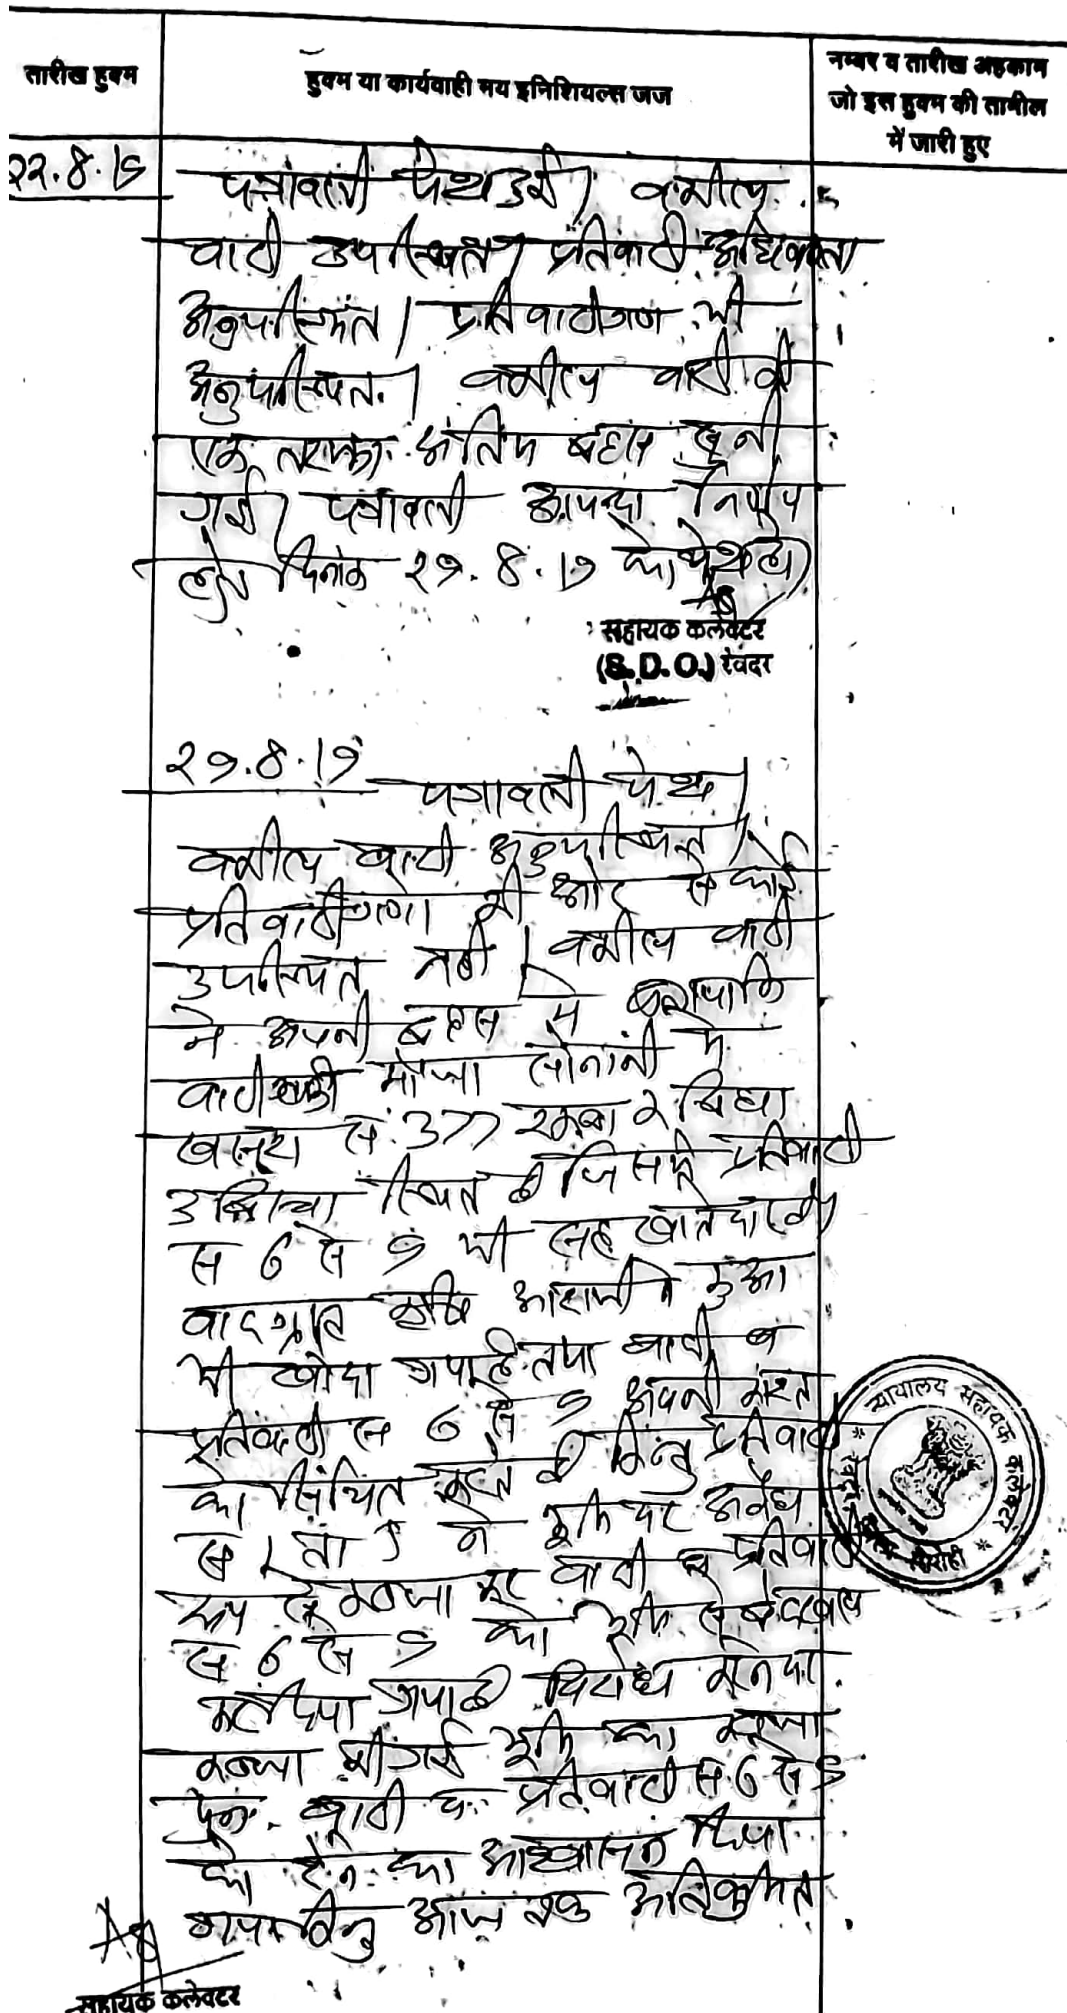 तारीख हुक्म
हुक्म या कार्यवाही मय इनिशियल्स जज
नम्बर व तारीख अहकाम
जो इस हुक्म की तामील
में जारी हुए
22.8.19
पत्रावली पेश हुई। वकील
वादी उपस्थित। प्रतिवादी अधिवक्ता
अनुपस्थित। प्रतिवादीगण भी
अनुपस्थित। वकील वादी की
एक तरफा अंतिम बहस सुनी
गई। पत्रावली आईन्दा निर्णय
हेतु दिनांक 29.8.19 को पेश हो।
सहायक कलेक्टर
(S.D.O.) रेवदर
29.8.19
पत्रावली पेश।
वकील वादी अनुपस्थित।
प्रतिवादीगण की ओर से कोई
उपस्थित नहीं। वकील वादी
ने अपनी बहस में बताया कि
वादी की मौजा सोनानी में
खसरा सं. 377 रकबा 2 बिघा
3 बिस्वा स्थित है जिसमें प्रतिवादी
सं 6 से 9 भी सह खातेदार है।
वादग्रस्त कृषि आराजी में कुआ
भी खोदा गया है तथा वादी व
प्रतिवादी सं 6 से 9 अपनी काश्त
को सिंचित करते है किन्तु प्रतिवादी
सं 1 ता 5 ने भूमि पर अवैध
रूप से कब्जा कर वादी व प्रतिवादी
सं 6 से 9 को भूमि से बेदखल
कर दिया गया है विरोध करने पर
कब्जा की गई भूमि का कब्जा
पुनः वादी व प्रतिवादी सं 6 से 9
को देने का आश्वासन दिया
गया किन्तु आज तक अतिक्रमित
सहायक कलेक्टर
न्यायालय सहायक कलेक्टर
रेवदर
सिरोही